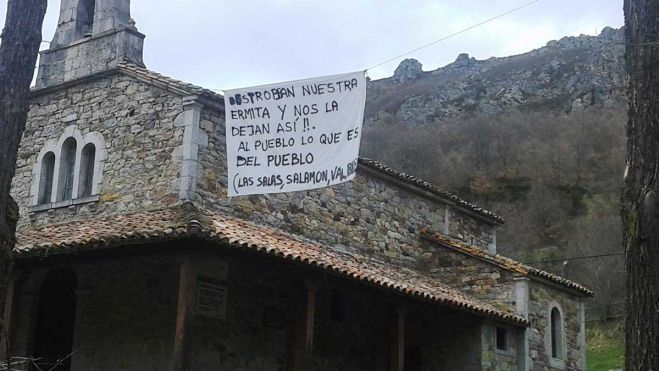 DESTROBAN NUESTRA
ERMITA Y NOS LA
DEJAN ASÍ!!.
AL PUEBLO LO QUE ES
DEL PUEBLO
(LAS SALAS, SALAMON,